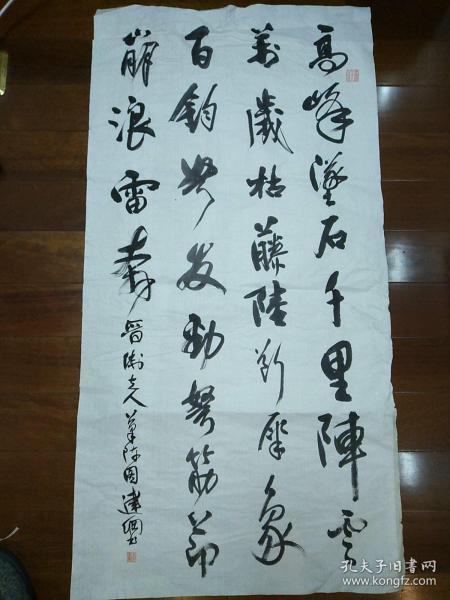 高峰墜石千里陣雲
萬歲枯藤陸斷犀象
百鈞弩發勁弩筋節
崩浪雷奔 晉衛夫人筆陣圖
孔夫子旧书网
www.kongfz.com